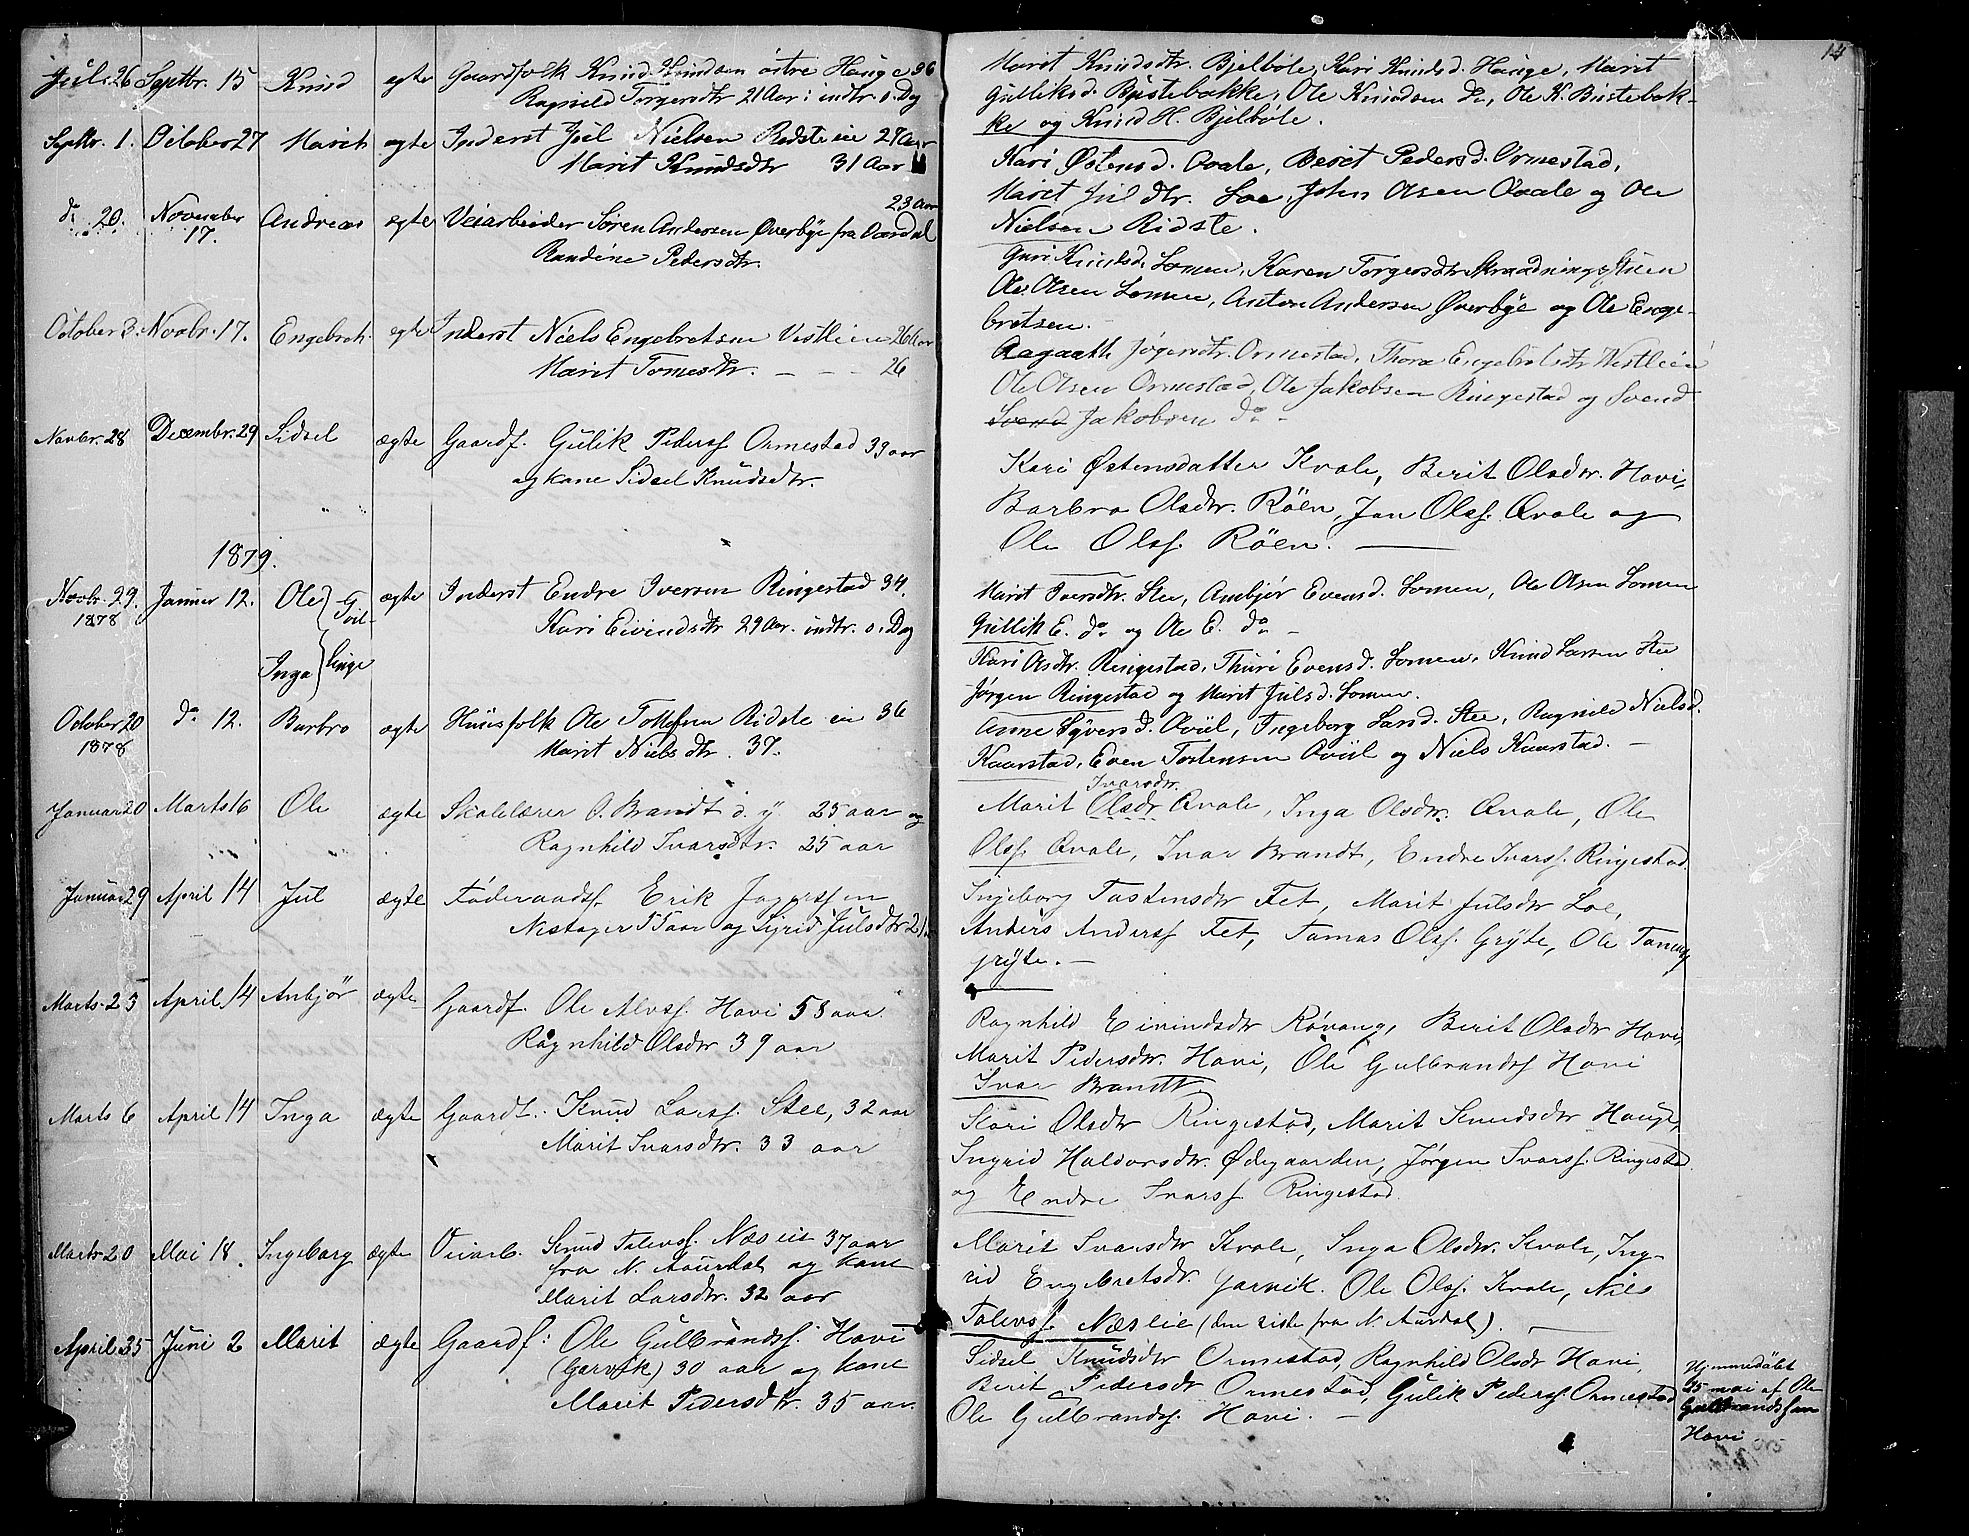 14
Juli 26 Septbr. 15 Knud egte Gaardfolk Knud Knudsen östre Hauge 36
Ragnild Torgersdtr 21 Aar: indtr. s. Dag
Maret Knudsdtr. Bjelbole, Kari Knudsd. Hauge, Marit
Gulliksd. Büstebakke, Ole Knudsen do, Ole K. Büstebak-
ke og Knud H. Bjelbole.
Septbr. 1. October 27 Marit egte Inderst Jul Nielsen Ridste eie 27 Aar
Marit Knudsdtr 31 Aar
Kari Østensd. Qvale, Beret Pedersd. Ormestad,
Maret Juldtr. Loe, John Olsen Qvale og Ole
Nielsen Ridste.
do 20. November 17. Andreas egte Veiarbeider Sören Andersen Øverbye fra Vardal 23 Aar
Randine Pedersdtr.
Guri Knudsd. Lomen, Karen Torgersdtr
Ole Olsen Lomen, Anton Andersen Øverbye og Ole Enge-
bretsen.
October 3. Novbr. 17. Engebret egte Inderst Niels Engebretsen Vestlien 26 Aar
Marit Tomesdtr. — — 26
Aagaath Jögensdtr. Ormestad, Thora Engebretsdtr Vestlien
Ole Olsen Ormestad, Ole Jakobsen Ringestad og Svend
Svend Jakobsen do -
Novbr. 28 Decembr. 29 Sidsel ægte Gaardf. Gulik Pederss Ormestad 33 aar
og kone Sidsel Knudsdtr.
Kari Østensdatter Kvale, Berit Olsdtr. Havi,
Barbro Olsdtr. Röen, Jon Olss. Qvale og
Ole Olss. Röen.
1879.
Novbr. 29. 1878 Januar 12. Ole Inga Tvil- linge ægte Inderst Endre Iversen Ringestad 34.
Kari Eivindsdtr 29 Aar. indtr. s. Dag
Marit Iversdtr. Stee, Ambjør Evensd. Lomen, Ole Olsen Lomen
Gullik E. do og Ole E. do -
Kari Olsdtr. Ringestad, Thuri Evensd. Lomen, Knud Larsen Stee
Jørgen Ringestad og Marit Julsd. Lomen.
October 20 1878 do 12. Barbro ægte Huusfolk Ole Tollefsen Ridste eie 36
Marit Nielsdtr. 37.
Anne Syversd. Qviil, Ingeborg Larsd. Stee, Ragnild Nielsd.
Kaarstad, Even Tostensen Qviil og Niels Kaarstad. —
Januar 20 Marts 16 Ole ægte Skolelærer O. Brandt d. y. 25 aar og
Ragnhild Ivarsdtr. 25 aar
Ivarsdtr.
Marit Olsdtr Qvale, Inga Olsdtr. Qvale, Ole
Olss. Qvale, Ivar Brandt, Endre Ivarss. Ringestad.
Januar 29 April 14 Jul ægte Föderaadsf. Erik
55 aar og Sigrid Julsdtr
Ingeborg Tostensdtr Fet, Marit Julsdtr Loe,
Anders Anderss Fet, Tomas Olss. Gryte, Ole
gryte. —
Marts 23 April 14 Anbjör ægte Gaardf. Ole Alvss. Havi 58 aar
Ragnhild Olsdtr 39 aar
Ragnhild Eivindsdtr Rövang, Berit Olsdtr Havi,
Marit Pedersdtr. Havi, Ole Gulbrandss Havi
Ivar Brandt.
Marts 6 April 14 Inga ægte Gaardf. Knud Larss. Stee, 32 aar
Marit Ivarsdtr. 33 aar
Kari Olsdtr Ringestad, Marit Knudsdtr Hauge,
Ingrid Haldorsdtr. Ødegaarden, Jörgen Ivarss. Ringestad
og Endre Ivarss Ringestad.
Marts 20 Mai 18. Ingeborg ægte Veiarb. Knud Tolevss. Næs eie 37 aar
fra N. Aurdal og kone
Marit Larsdtr. 32 aar
Marit Ivarsdtr Kvale, Inga Olsdtr. Kvale, Ing-
rid Engebretsdtr. Garvik. Ole Olss. Kvale, Nils
Tolevss. Næs eie (den siste fra N. Aurdal). —
April 25 Juni 2 Marit ægte Gaardf: Ole Gulbrandss. Havi
(Garvik) 30 aar og kone
Marit Pedersdtr. 35 aar.
Sidsel Knudsdtr Ormestad, Ragnhild Olsdtr Havi,
Berit Pedersdtr Ormestad, Gulik Pederss. Ormestad
Ole Gulbrandss. Havi. —
Hjemmedöbt
25 mai af Ole
Gulbrandssen
Havi